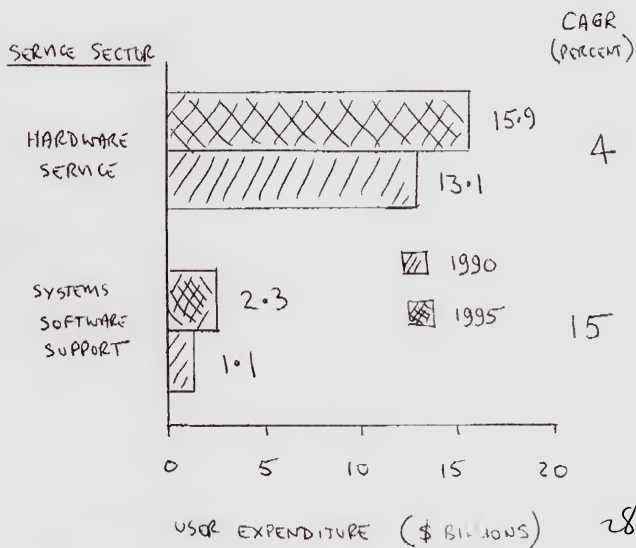 CAGR
(PERCENT)
SERVICE SECTOR
HARDWARE
SERVICE
15.9
13.1
4
1990
1995
SYSTEMS
SOFTWARE
SUPPORT
2.3
1.1
15
0 5 10 15 20
USER EXPENDITURE ($ BILLIONS)
28